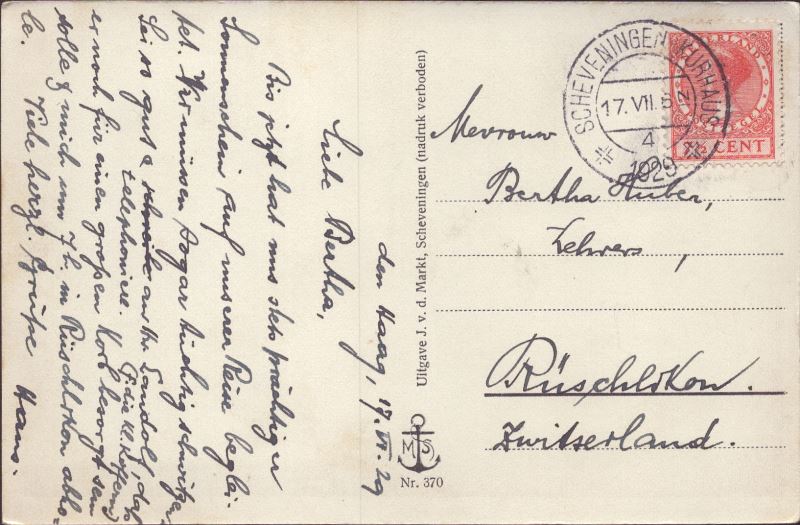 den Haag, 17. VII. 29
Liebe Bertha,
Bis jetzt hat uns stets prächtiger
Sonnenschein auf unserer Reise beglei-
tet. Wir müssen sogar tüchtig schwitzen.
Sei so gut & schreibe an Hr. Landolt, daß
telephoniere.
er noch für einen großen Korb besorgt sein
(f. die kl. Koffern)
solle & mich um 7 h. in Rüschlikon abho-
le. Viele herzl. Grüße Hans.
Uitgave J. v. d. Markt, Scheveningen (nadruk verboden)
M S
Nr. 370
SCHEVENINGEN KURHAUS
17. VII. 6-7
4
1929
NEDERLAND
7½ CENT
Mevrouw
Bertha Huber,
Lehrers,
Rüschlikon.
Zwitserland.